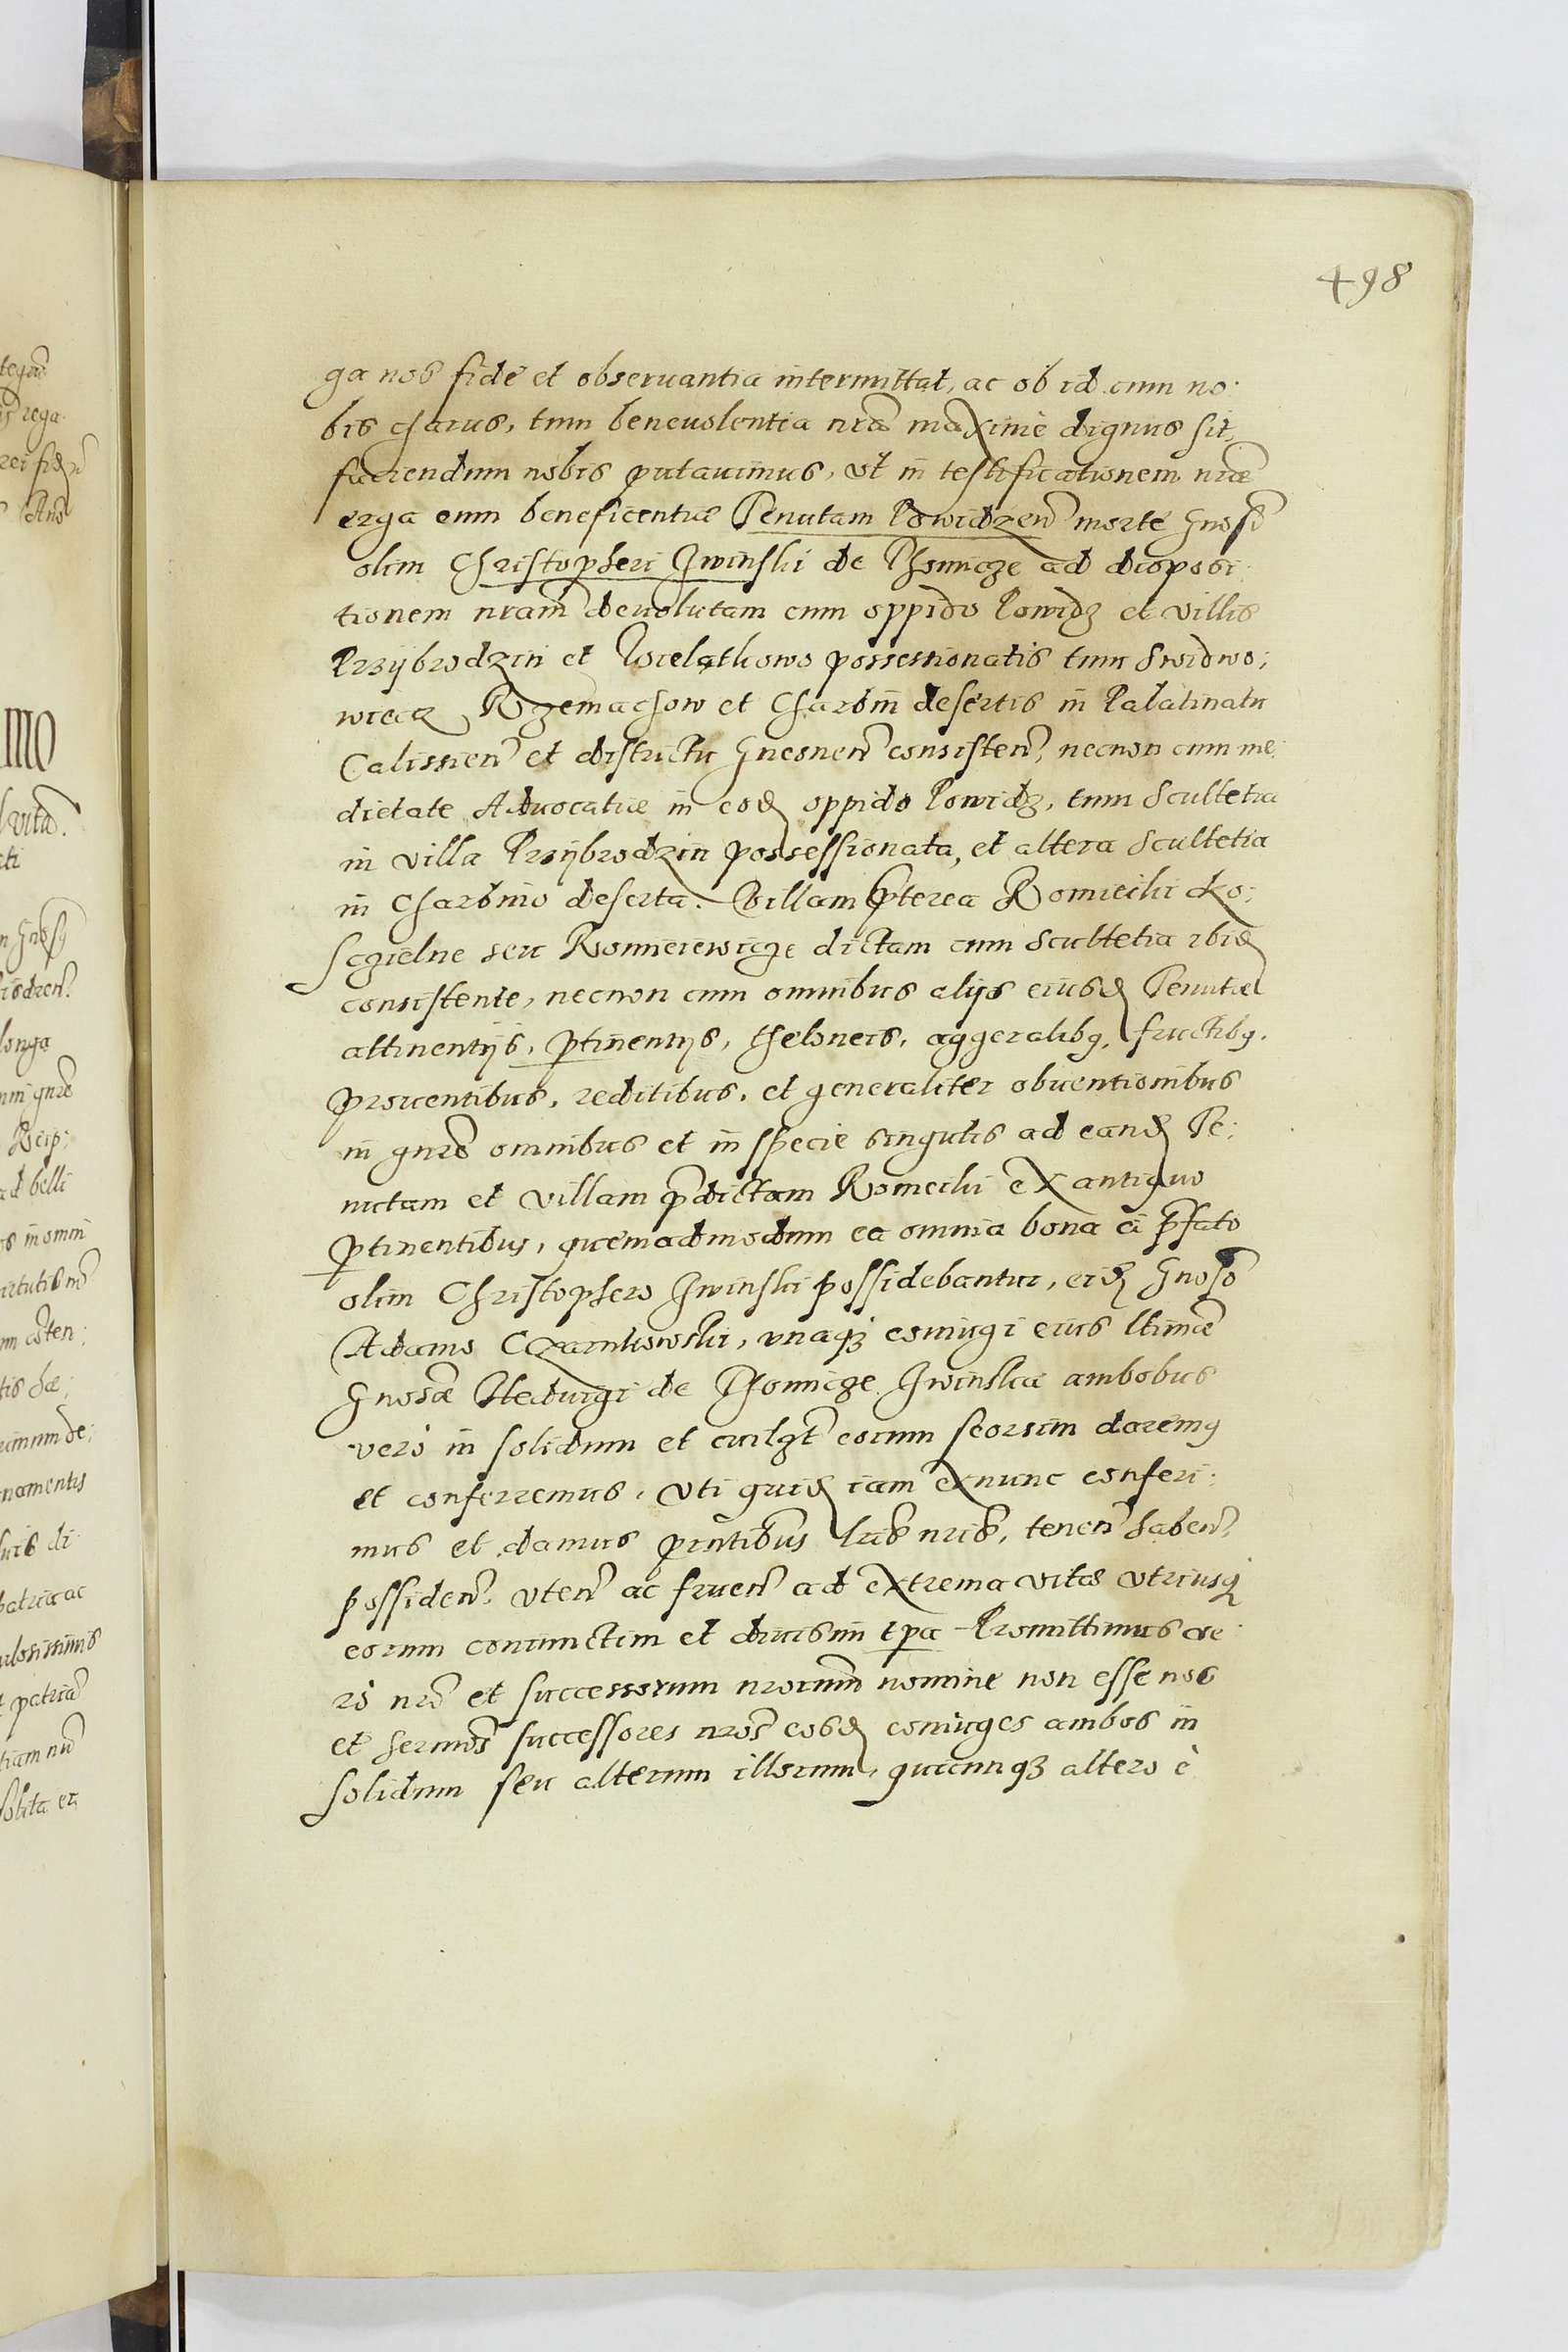 498
ga nos fidē et obseruantia intermittat, ac ob id cum no-
bis charus, tum beneuolentia nr̄a maximè dignus sit,
faciendum nobis putauimus, vt in testificationem nr̄æ
erga eum beneficentiæ Tenutam Powidzen̄ morte Gnosi
olim Christopheri Iwinski de Thomicze ad disposi-
tionem nrām deuolutam cum oppido Powidz et villis
Przybrodzin et Wielathowo possessionatis tum Swidwo-
wiecz, Rzemachow et Charbin desertis in Palatinatu
Calissien̄ et districtu Gnesnen̄ consisten̄, necnon cum me-
dietate Aduocatiæ in eod oppido Powidz, tum Scultetia
in villa Przybrodzin possessionata, et altera Scultetia
in Charbino deserta. Villam ꝑterea Komieiki Ko-
sczielne seu Komieiewicze dictam cum Scultetia ibid
consistente, necnon cum omnibus alijs eiusd Tenutæ
attinentijs, ꝑtinentijs, theloneis, aggeralibꝫ, fructibꝫ,
prouentibus, reditibus, et generaliter obuentionibus
in gnr̄e omnibus et in specie singulis ad eand Te-
nutam et villam p̄dictam Komeiki ex antiquo
ꝑtinentibus, quemadmodum ea omnia bona à p̄fato
olim Christophero Iwinski possidebantur, eid Gnoso
Adamo Czarnkowski, vnaqꝫ coniugi eius ltimæ
Gnosæ Heduigi de Thomicze Iwinska ambobus
verò in solidum et cuilꝫt eorum seorsim daremꝰ
et conferremus, vti quid iam exnunc conferi-
mus et damus pn̄tibus lr̄is nr̄is, tenen̄ haben̄
possiden̄ vten̄ ac fruen̄ ad extrema vitæ vtriusqꝫ
eorum coniunctim et diuisim tp̄a Promittimus ve-
rò nr̄o et successorum nrorum nomine non esse nos
et Sermos successores nros eosd coniuges ambos in
solidum seu alterum illorum, quicunqꝫ altero è